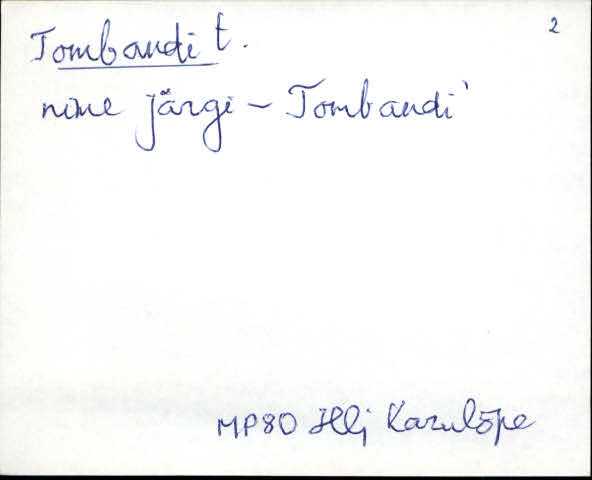 2
Tombandi t.
nime järgi – Tombandi'
MP80 Hlj Karulõpe